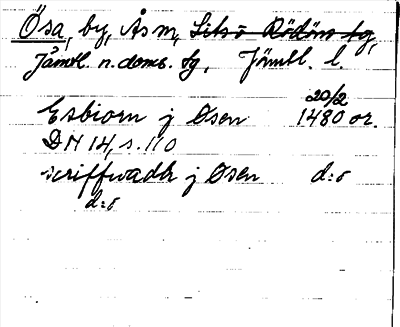 Ösa, by, Ås sn, Litsö Rödöns tg,
Jämtl. n. doms. tg, Jämtl. l.
Esbiorn j Øsen 20/2 1480 or.
DN 14, s. 110
scriffwadh j Øsen d:o
d:o